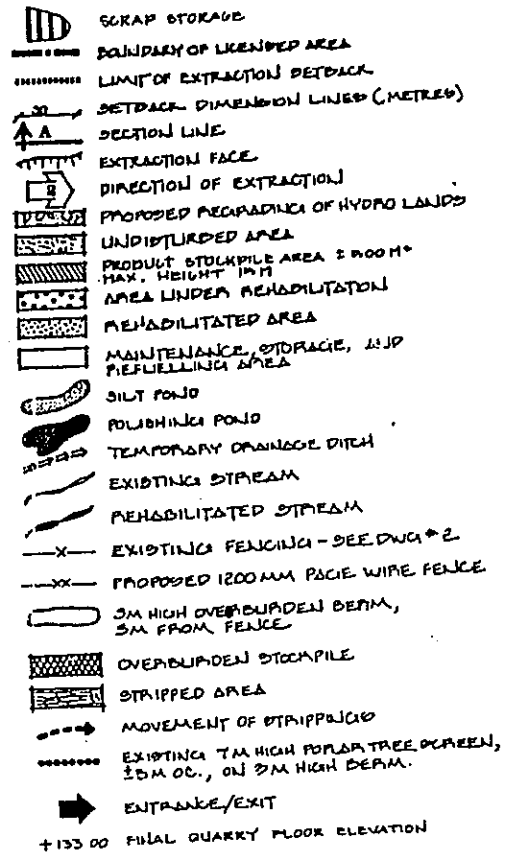 SCRAP STORAGE
BOUNDARY OF LICENSED AREA
LIMIT OF EXTRACTION SETBACK
30 SETBACK DIMENSION LINES (METRES)
A SECTION LINE
EXTRACTION FACE
DIRECTION OF EXTRACTION
PROPOSED REGRADING OF HYDRO LANDS
UNDISTURBED AREA
PRODUCT STOCKPILE AREA
MAX. HEIGHT
AREA UNDER REHABILITATION
REHABILITATED AREA
MAINTENANCE, STORAGE, AND
REFUELLING AREA
SILT POND
POLISHING POND
TEMPORARY DRAINAGE DITCH
EXISTING STREAM
REHABILITATED STREAM
X EXISTING FENCING - SEE DWG # 2
XX PROPOSED 1200 MM PAGE WIRE FENCE
3M HIGH OVERBURDEN BERM,
3M FROM FENCE
OVERBURDEN STOCKPILE
STRIPPED AREA
MOVEMENT OF STRIPPINGS
EXISTING 7M HIGH POPLAR TREE SCREEN,
±3M OC., ON 3M HIGH BERM.
ENTRANCE/EXIT
+133 00 FINAL QUARRY FLOOR ELEVATION